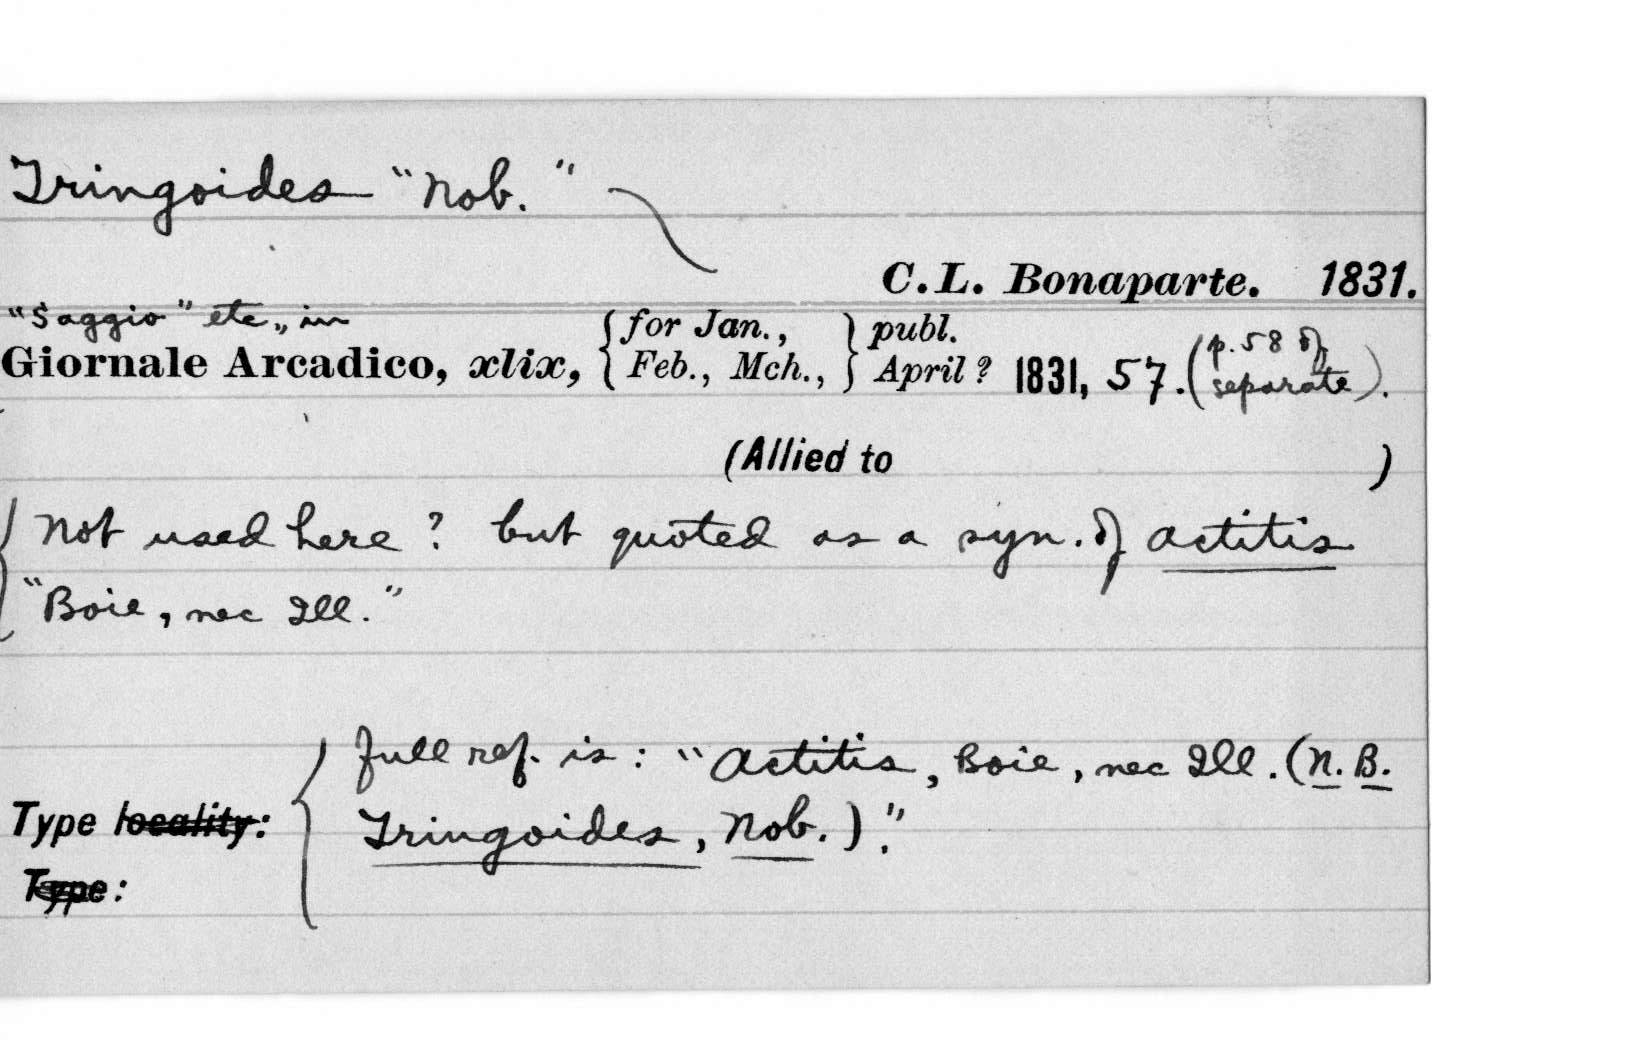 Tringoides "Nob."
C.L. Bonaparte. 1831.
"Saggio" etc., in
Giornale Arcadico, xlix, { for Jan., Feb., Mch., } publ. April? 1831, 57. (p. 58 of separate).
(Allied to )
Not used here? but quoted as a syn. of Actitis
"Boie, nec Ill."
full ref. is: "Actitis, Boie, nec Ill. (N.B.
Tringoides, Nob.)."
Type locality:
Type: